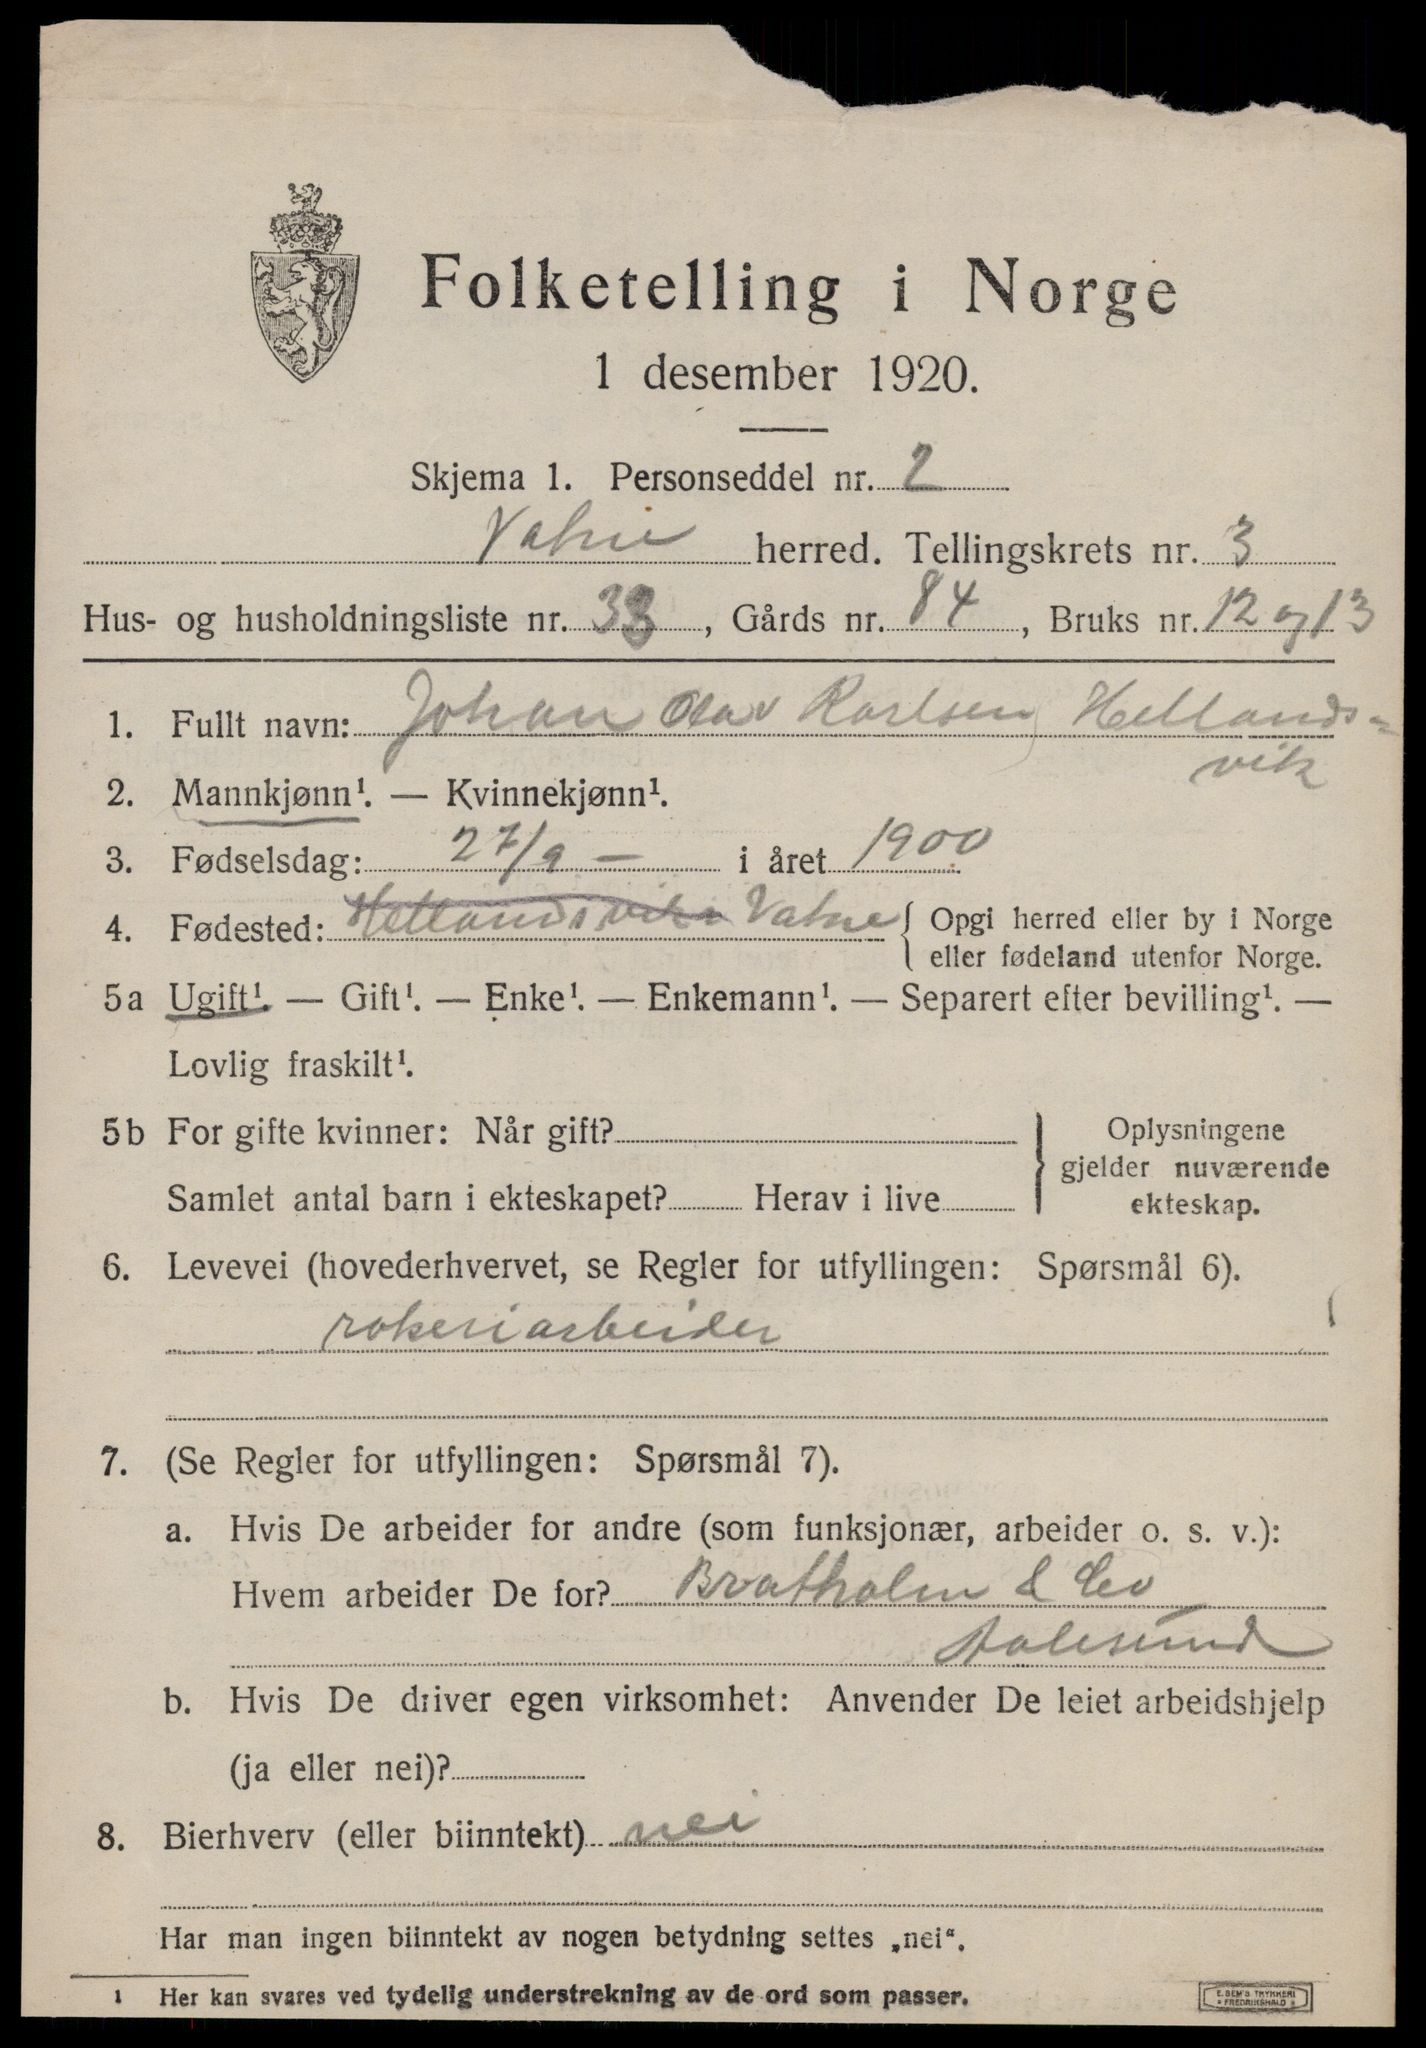 Folketelling i Norge
1 desember 1920.
Skjema 1. Personseddel nr. 2
Vatne herred. Tellingskrets nr. 3
Hus- og husholdningsliste nr. 33, Gårds nr. 84, Bruks nr. 12 og 13
1. Fullt navn: Johan Olav Karlsen Hellands-
vik
2. Mannkjønn¹. — Kvinnekjønn¹.
3. Fødselsdag: 27/9 — i året 1900
4. Fødested: Hellandsvik Vatne { Opgi herred eller by i Norge
eller fødeland utenfor Norge.
5a Ugift¹. — Gift¹. — Enke¹. — Enkemann¹. — Separert efter bevilling¹. —
Lovlig fraskilt¹.
5b For gifte kvinner: Når gift?
Samlet antal barn i ekteskapet? Herav i live
} Oplysningene
gjelder nuværende
ekteskap.
6. Levevei (hovederhvervet, se Regler for utfyllingen: Spørsmål 6).
røkeriarbeider
7. (Se Regler for utfyllingen: Spørsmål 7).
a. Hvis De arbeider for andre (som funksjonær, arbeider o. s. v.):
Hvem arbeider De for? Bratholm & Co
Aalesund
b. Hvis De driver egen virksomhet: Anvender De leiet arbeidshjelp
(ja eller nei)?
8. Bierhverv (eller biinntekt) nei
Har man ingen biinntekt av nogen betydning settes „nei“.
1 Her kan svares ved tydelig understrekning av de ord som passer.
E. SEM'S TRYKKERI
FREDRIKSHALD